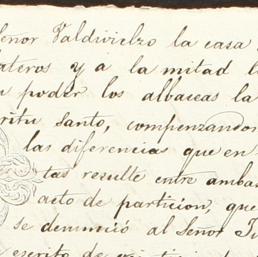 Señor Valdivielzo la casa
ateros y a la mitad
poder los albaceas la
ritu Santo, compensandose
las diferencias que en
tas resulte entre ambas
acto de particion, que
se denunció al Señor
escrito de